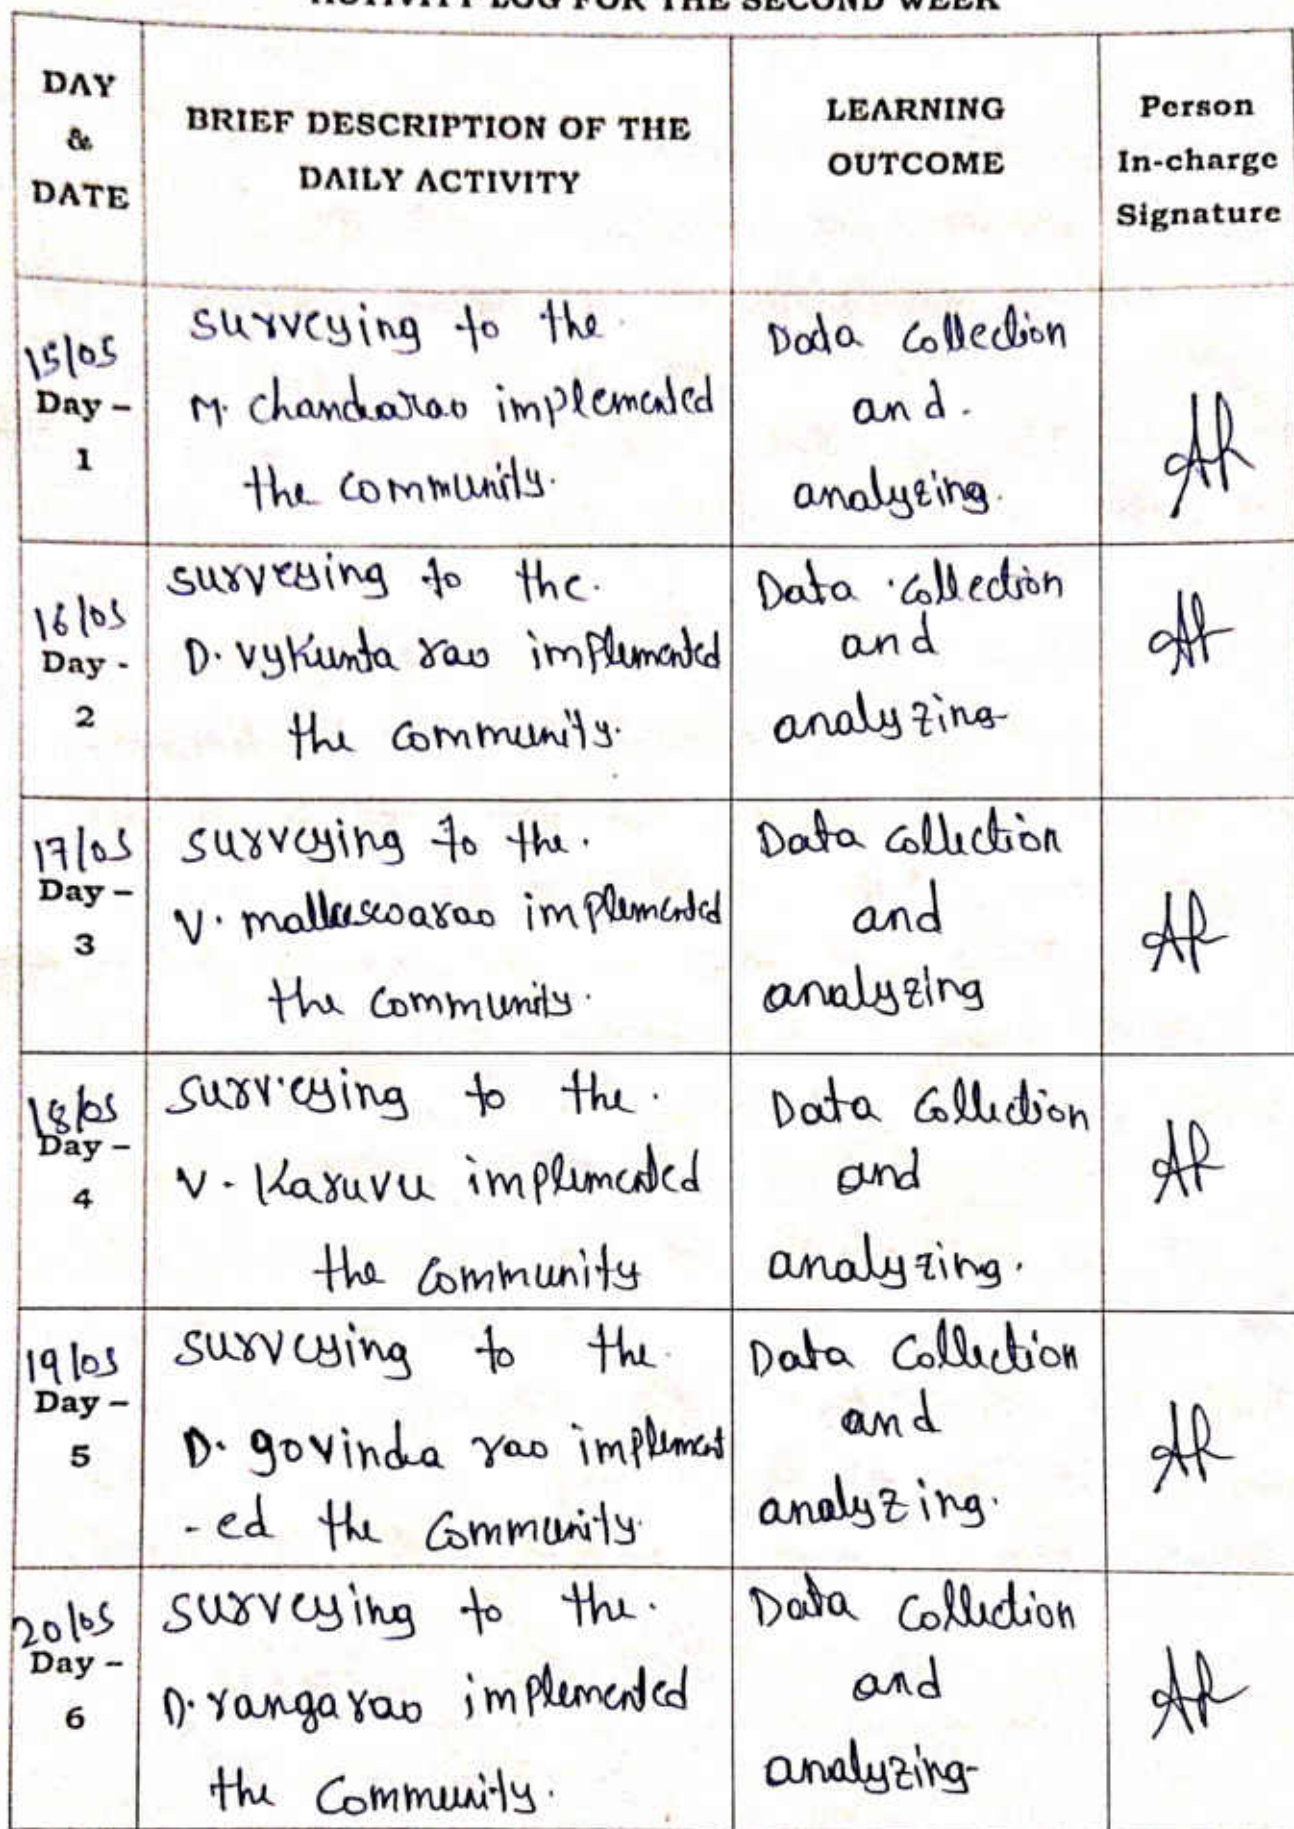 ACTIVITY LOG FOR THE SECOND WEEK
DAY
&
DATE
BRIEF DESCRIPTION OF THE
DAILY ACTIVITY
LEARNING
OUTCOME
Person
In-charge
Signature
15/05
Day –
1
surveying to the.
M. chandarao implemented
the community.
Data collection
and.
analyzing.
16/05
Day -
2
surveying to the.
D. vykunta rao implemented
the community.
Data collection
and
analyzing
17/05
Day –
3
surveying to the.
V. implemented
the community.
Data collection
and
analyzing
18/05
Day –
4
surveying to the.
V. Karuvu implemented
the community
Data collection
and
analyzing.
19/05
Day –
5
surveying to the.
D. govinda rao implement
-ed the community.
Data collection
and
analyzing.
20/05
Day –
6
surveying to the.
D. rangarao implemented
the community.
Data collection
and
analyzing